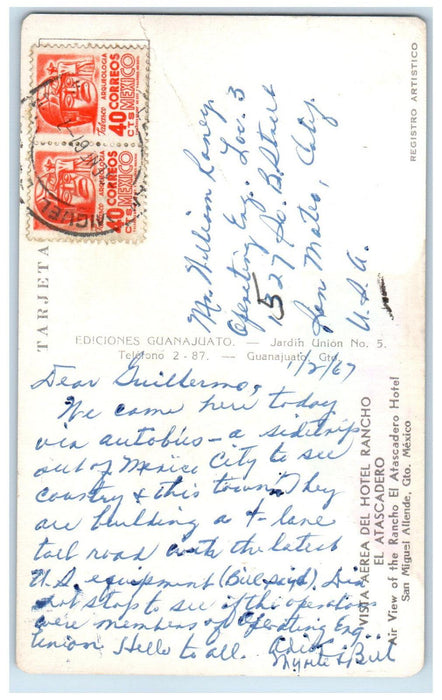 40 CORREOS
CTS MEXICO
Tabasco ARQUEOLOGIA
40 CORREOS
CTS MEXICO
Tabasco ARQUEOLOGIA
MIGUEL
TARJETA
REGISTRO ARTISTICO
Mr. William Raney
Operating Eng. Loc. 3
1527 So. B. Street
San Mateo, City.
U.S.A.
EDICIONES GUANAJUATO. — Jardín Unión No. 5.
Teléfono 2 - 87. — Guanajuato, Gto.
1/2/67
Dear Guillermo,
We came here today
via autobús – a sidetrip
out of Mexico City to see
country & this town. They
are building a 4-lane
toll road with the latest
U.S. equipment (Bill said). Did
not stop to see if the operators
were members of Operating Eng.
Union. Hello to all.
Myrtle & Bill
VISTA AEREA DEL HOTEL RANCHO
EL ATASCADERO
Air View of the Rancho El Atascadero Hotel
San Miguel Allende, Gto. México